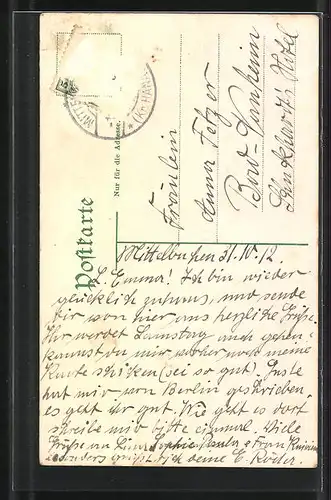 Postkarte
Nur für die Adresse.
Fräulein
Anna Fetzer
Bad-Nauheim
Burkhardts Hotel
Mittelbuchen 31.10.12.
L. Emma! Ich bin wieder
glücklich zuhaus, und sende
dir von hier aus herzliche Grüße.
Ihr werdet Samstag auch gehen
kannst du mir vorher noch meine
Karte schicken (sei so gut). Guste
hat mir von Berlin geschrieben,
es geht ihr gut. Wie geht es dort
schreibe mir bitte einmal. Viele
Grüße an Lina, Sophie, Paula & Frau
besonders grüßt dich deine E. Röder.